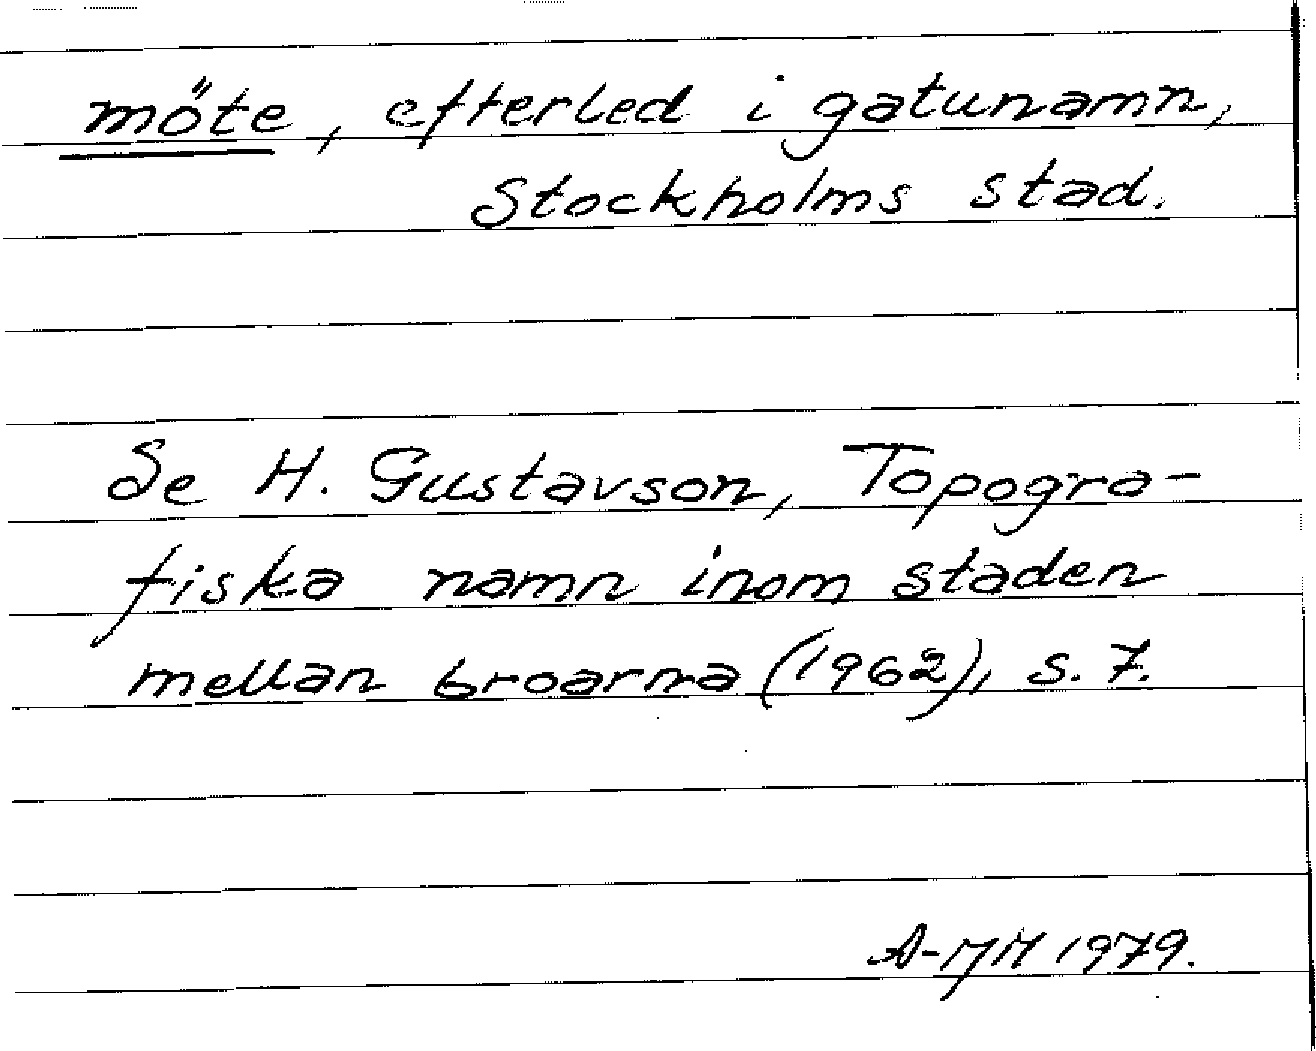 möte, efterled i gatunamn,
Stockholms stad.
Se H. Gustavson, Topogra-
fiska namn inom staden
mellan broarna (1962), s. 7.
1979.